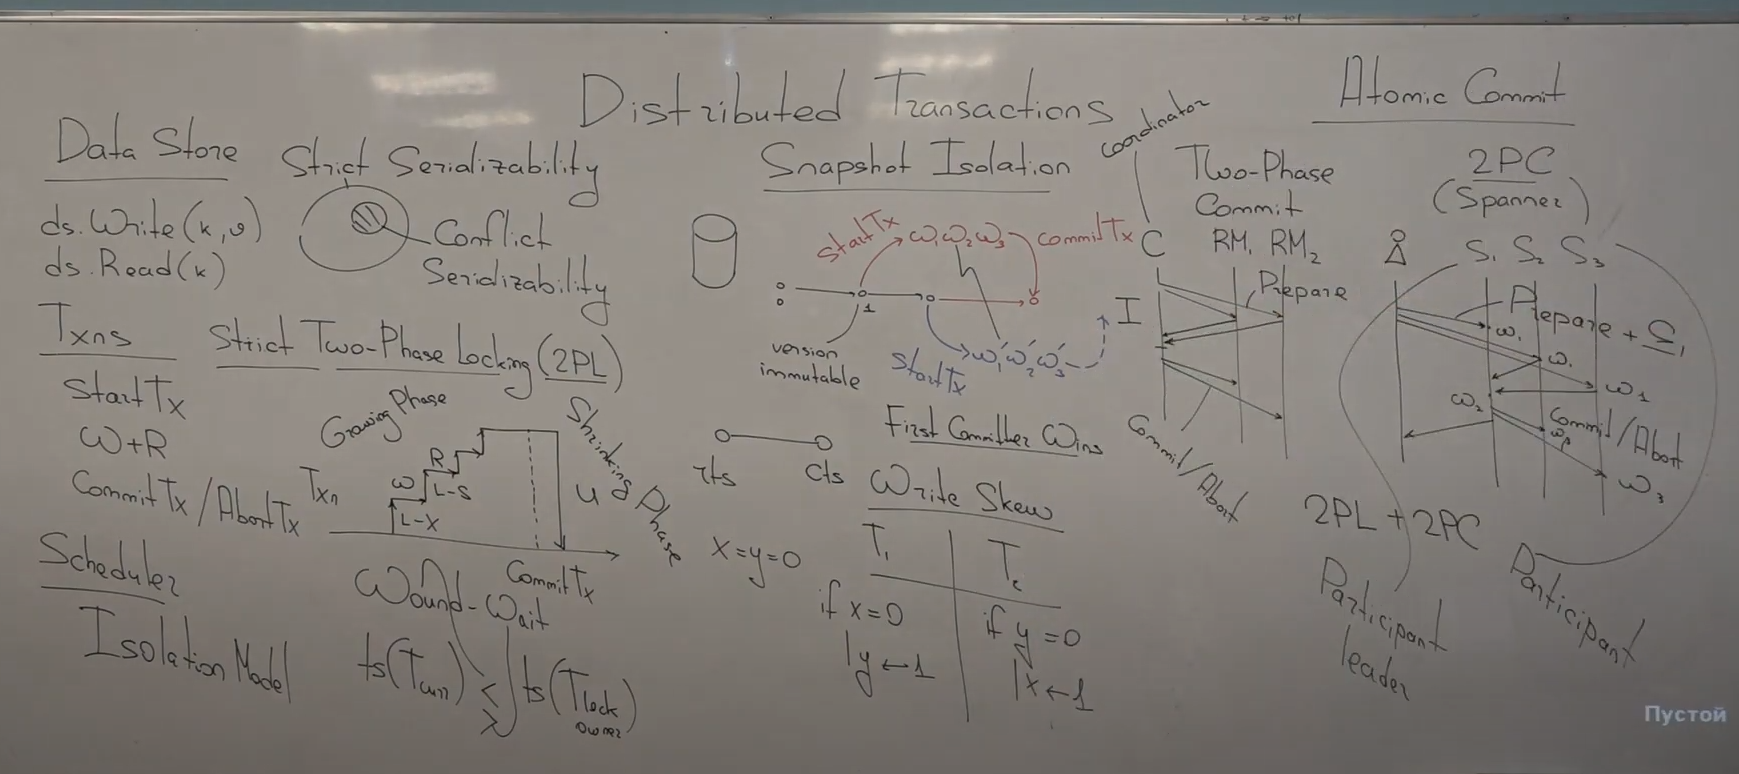 Distributed Transactions
Atomic Commit
Data Store
ds.Write(k,v)
ds.Read(k)
Txns
StartTx
W+R
CommitTx / AbortTx
Scheduler
Isolation Model
Strict Serializability
Conflict
Serializability
Strict Two-Phase Locking (2PL)
Growing Phase
Shrinking Phase
Txn
W
R
L-X
L-S
U
CommitTx
Wound-Wait
ts(Tcurr) < > ts(Tlock owner)
Snapshot Isolation
StartTx
W1 W2 W3
CommitTx
1
version
immutable
StartTx
W'1 W'2 W'3
First Committer Wins
rts
cts
Write Skew
x=y=0
T1
T2
if x=0
y←1
if y=0
x←1
coordinator
Two-Phase
Commit
C
RM1 RM2
I
Prepare
Commit/Abort
2PC
(Spanner)
S1 S2 S3
Prepare + S1
W1
W1
W1
W2
Commit/Abort
W3
2PL + 2PC
Participant
leader
Participant
Пустой